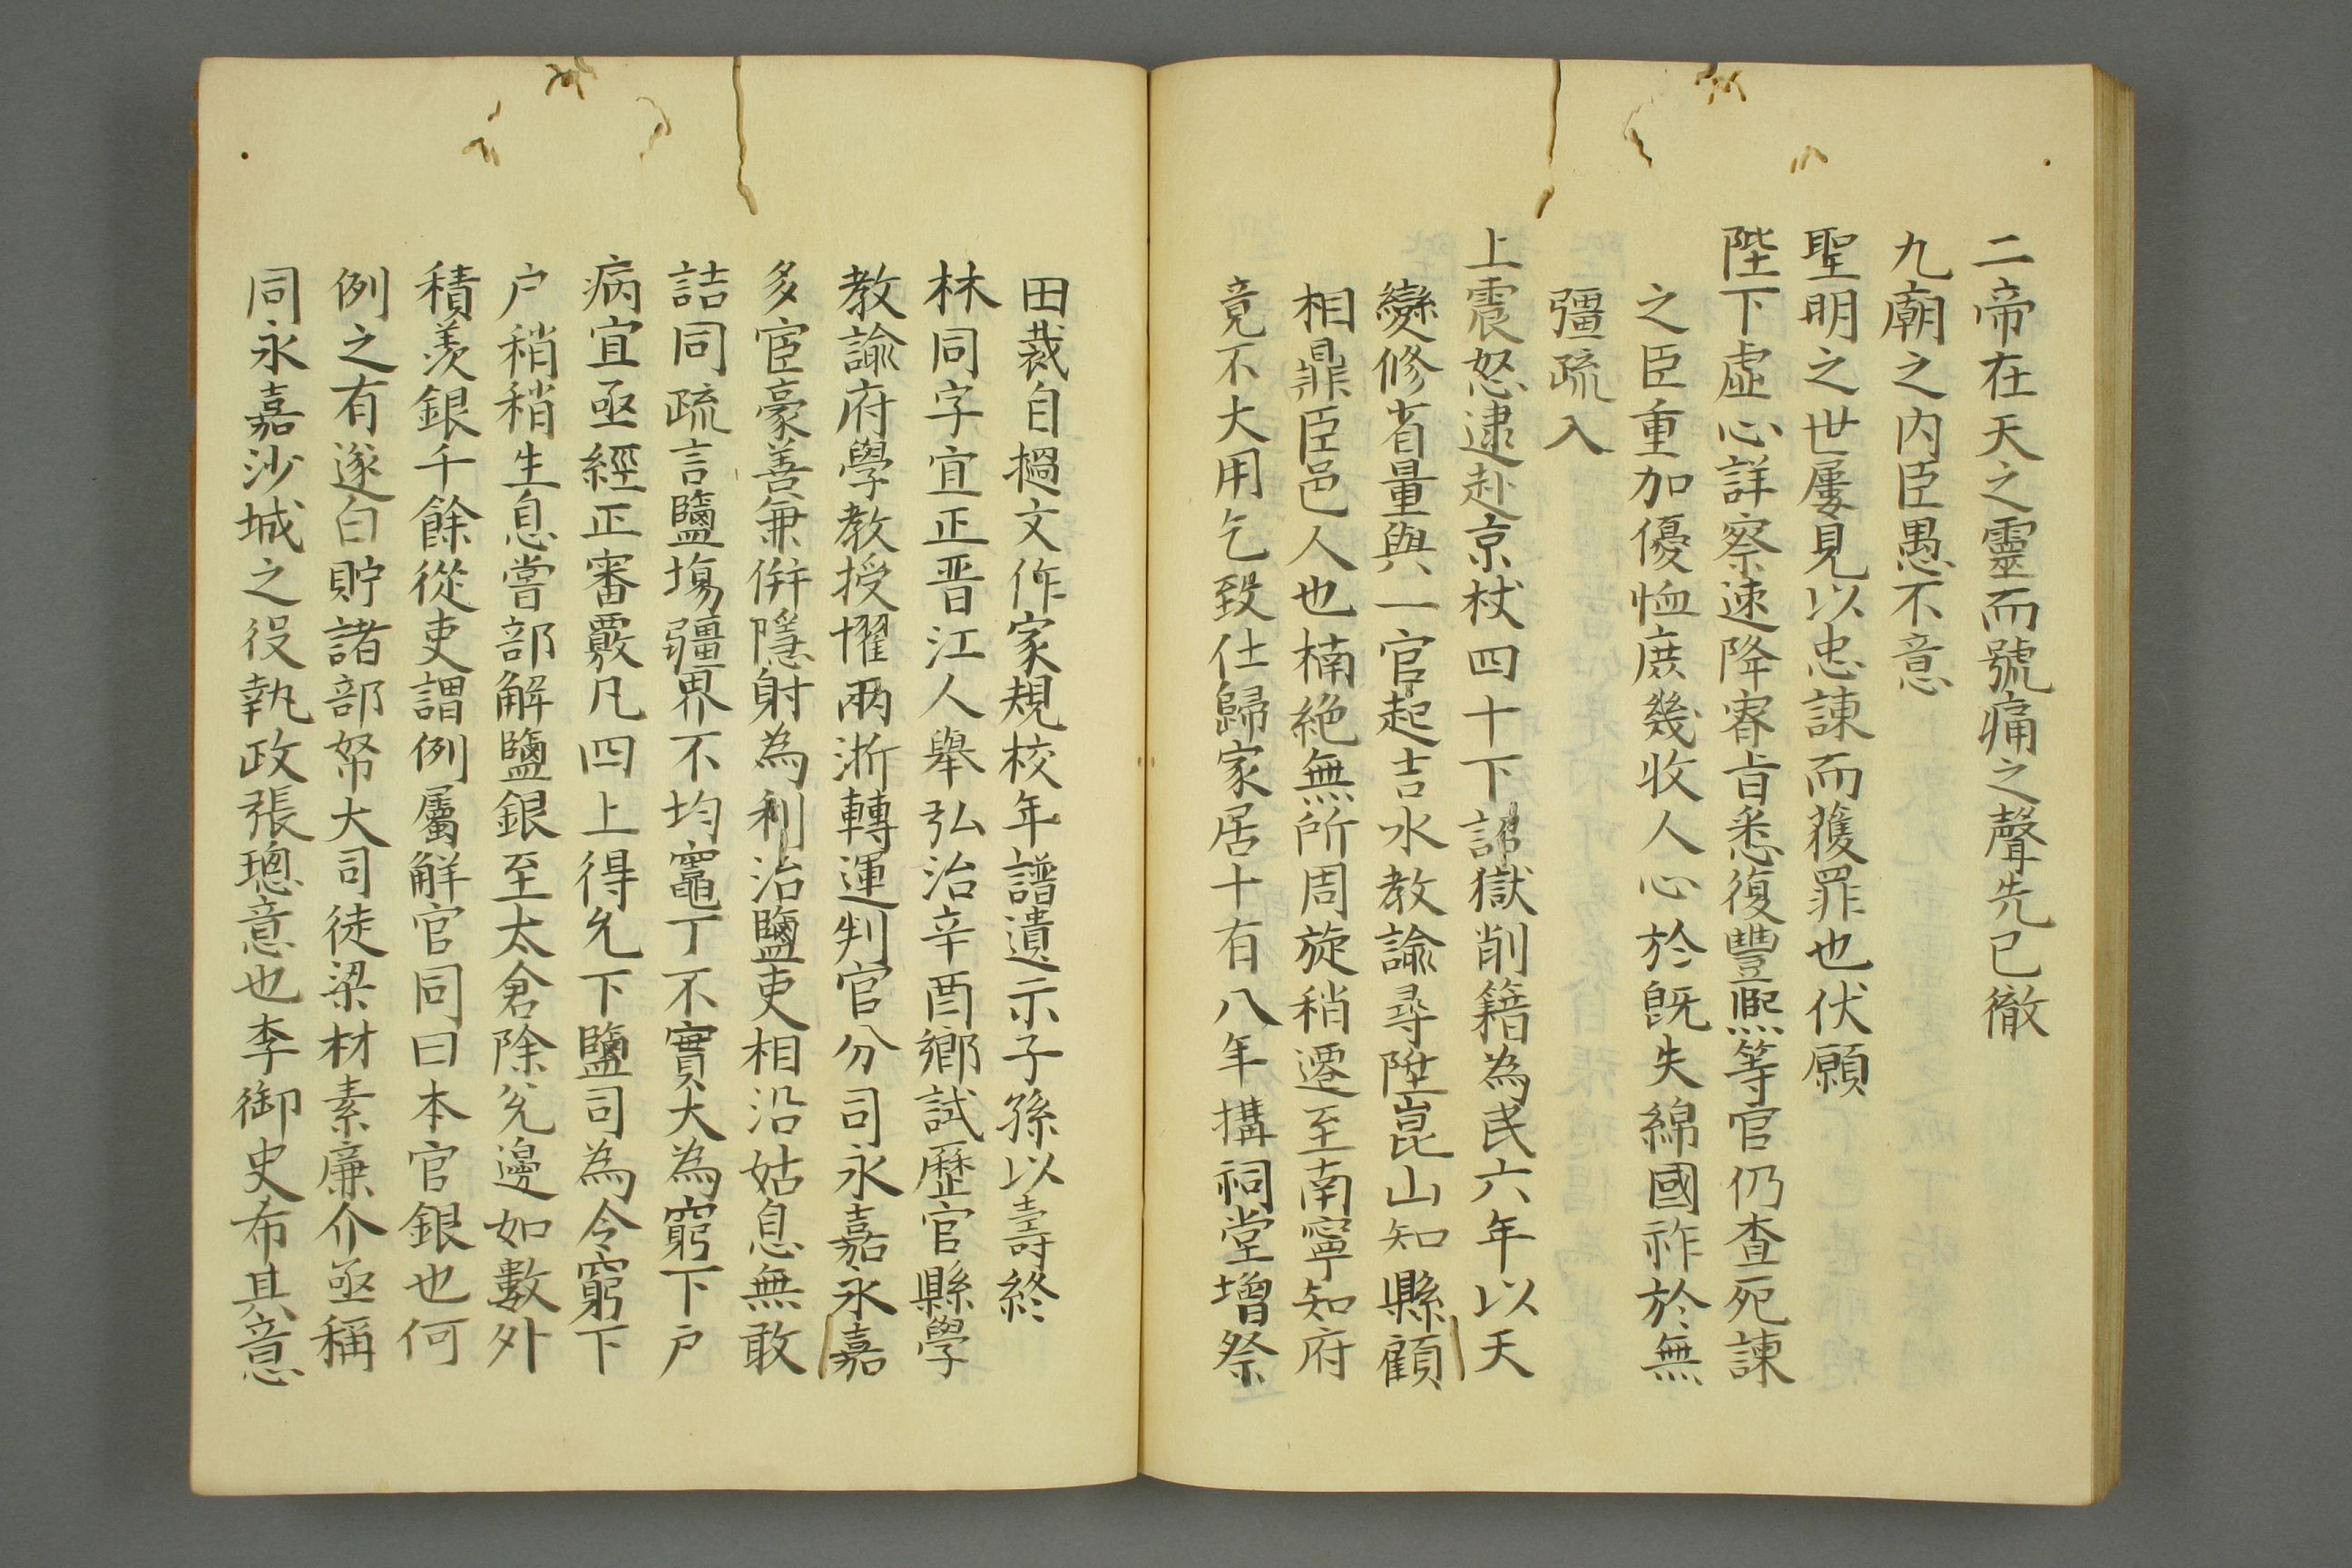 二帝在天之靈而號痛之聲先已徹
九廟之内臣愚不意
聖明之世屢見以忠諫而獲罪也伏願
陛下虛心詳察速降睿旨悉復豐熙等官仍查死諫
之臣重加優恤庻幾收人心於旣失綿國祚於無
彊疏入
上震怒逮赴京杖四十下詔獄削籍為民六年以天
變修省量與一官起吉水教諭尋陞崑山知縣顧
相鼎臣邑人也楠絶無所周旋稍遷至南寧知府
竟不大用乞致仕歸家居十有八年搆祠堂增祭
田裁自撾文作家規校年譜遺示子孫以壽終
林同字宜正晋江人舉弘治辛酉鄉試歷官縣學
教諭府學教授擢兩浙轉運判官分司永嘉永嘉
多宦豪善兼併隱射為利治鹽吏相沿姑息無敢
詰同疏言鹽塲疆界不均竈丁不實大為窮下户
病宜亟經正審覈凡四上得允下鹽司為令窮下
户稍稍生息嘗部解鹽銀至太倉除兊邊如數外
積羨銀千餘從吏謂例屬解官同曰本官銀也何
例之有遂白貯諸部帑大司徒梁材素廉介亟稱
同永嘉沙城之役執政張璁意也李御史布其意